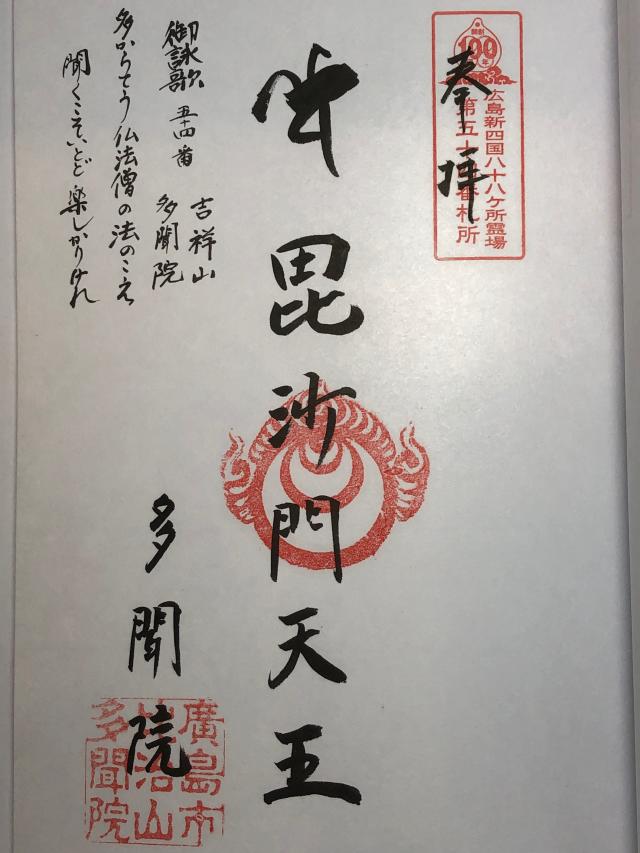 開創
100年
広島新四国八十八ケ所霊場
第五十四番札所
奉拝
毘沙門天王
多聞院
廣島市
比治山
多聞院
御詠歌 五十四番
吉祥山
多聞院
多からてう仏法僧の法のこえ
聞くこそいとど楽しかりけれ